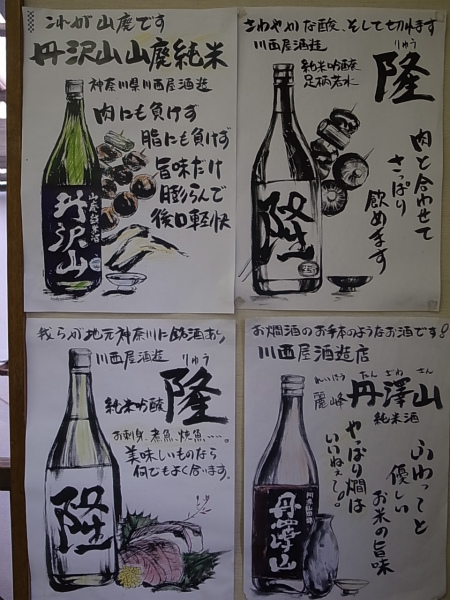 これが山廃です
丹沢山山廃純米
神奈川県川西屋酒造
肉にも負けず
脂にも負けず
旨味だけ
膨らんで
後口軽快
山廃純米酒
丹沢山
さわやかな酸、そして切れます
川西屋酒造
りゅう
隆
純米吟醸
足柄若水
肉と合わせて
さっぱり
飲めます
隆
我らが地元神奈川に銘酒あり
川西屋酒造
りゅう
隆
純米吟醸
お刺身、煮魚、焼魚……。
美味しいものなら
何でもよく合います。
隆
お燗酒のお手本のようなお酒です!
川西屋酒造店
れいほう たんざわさん
麗峰 丹澤山
純米酒
ふわっと
優しい
お米の旨味
やっぱり燗は
いいねぇ。
丹澤山